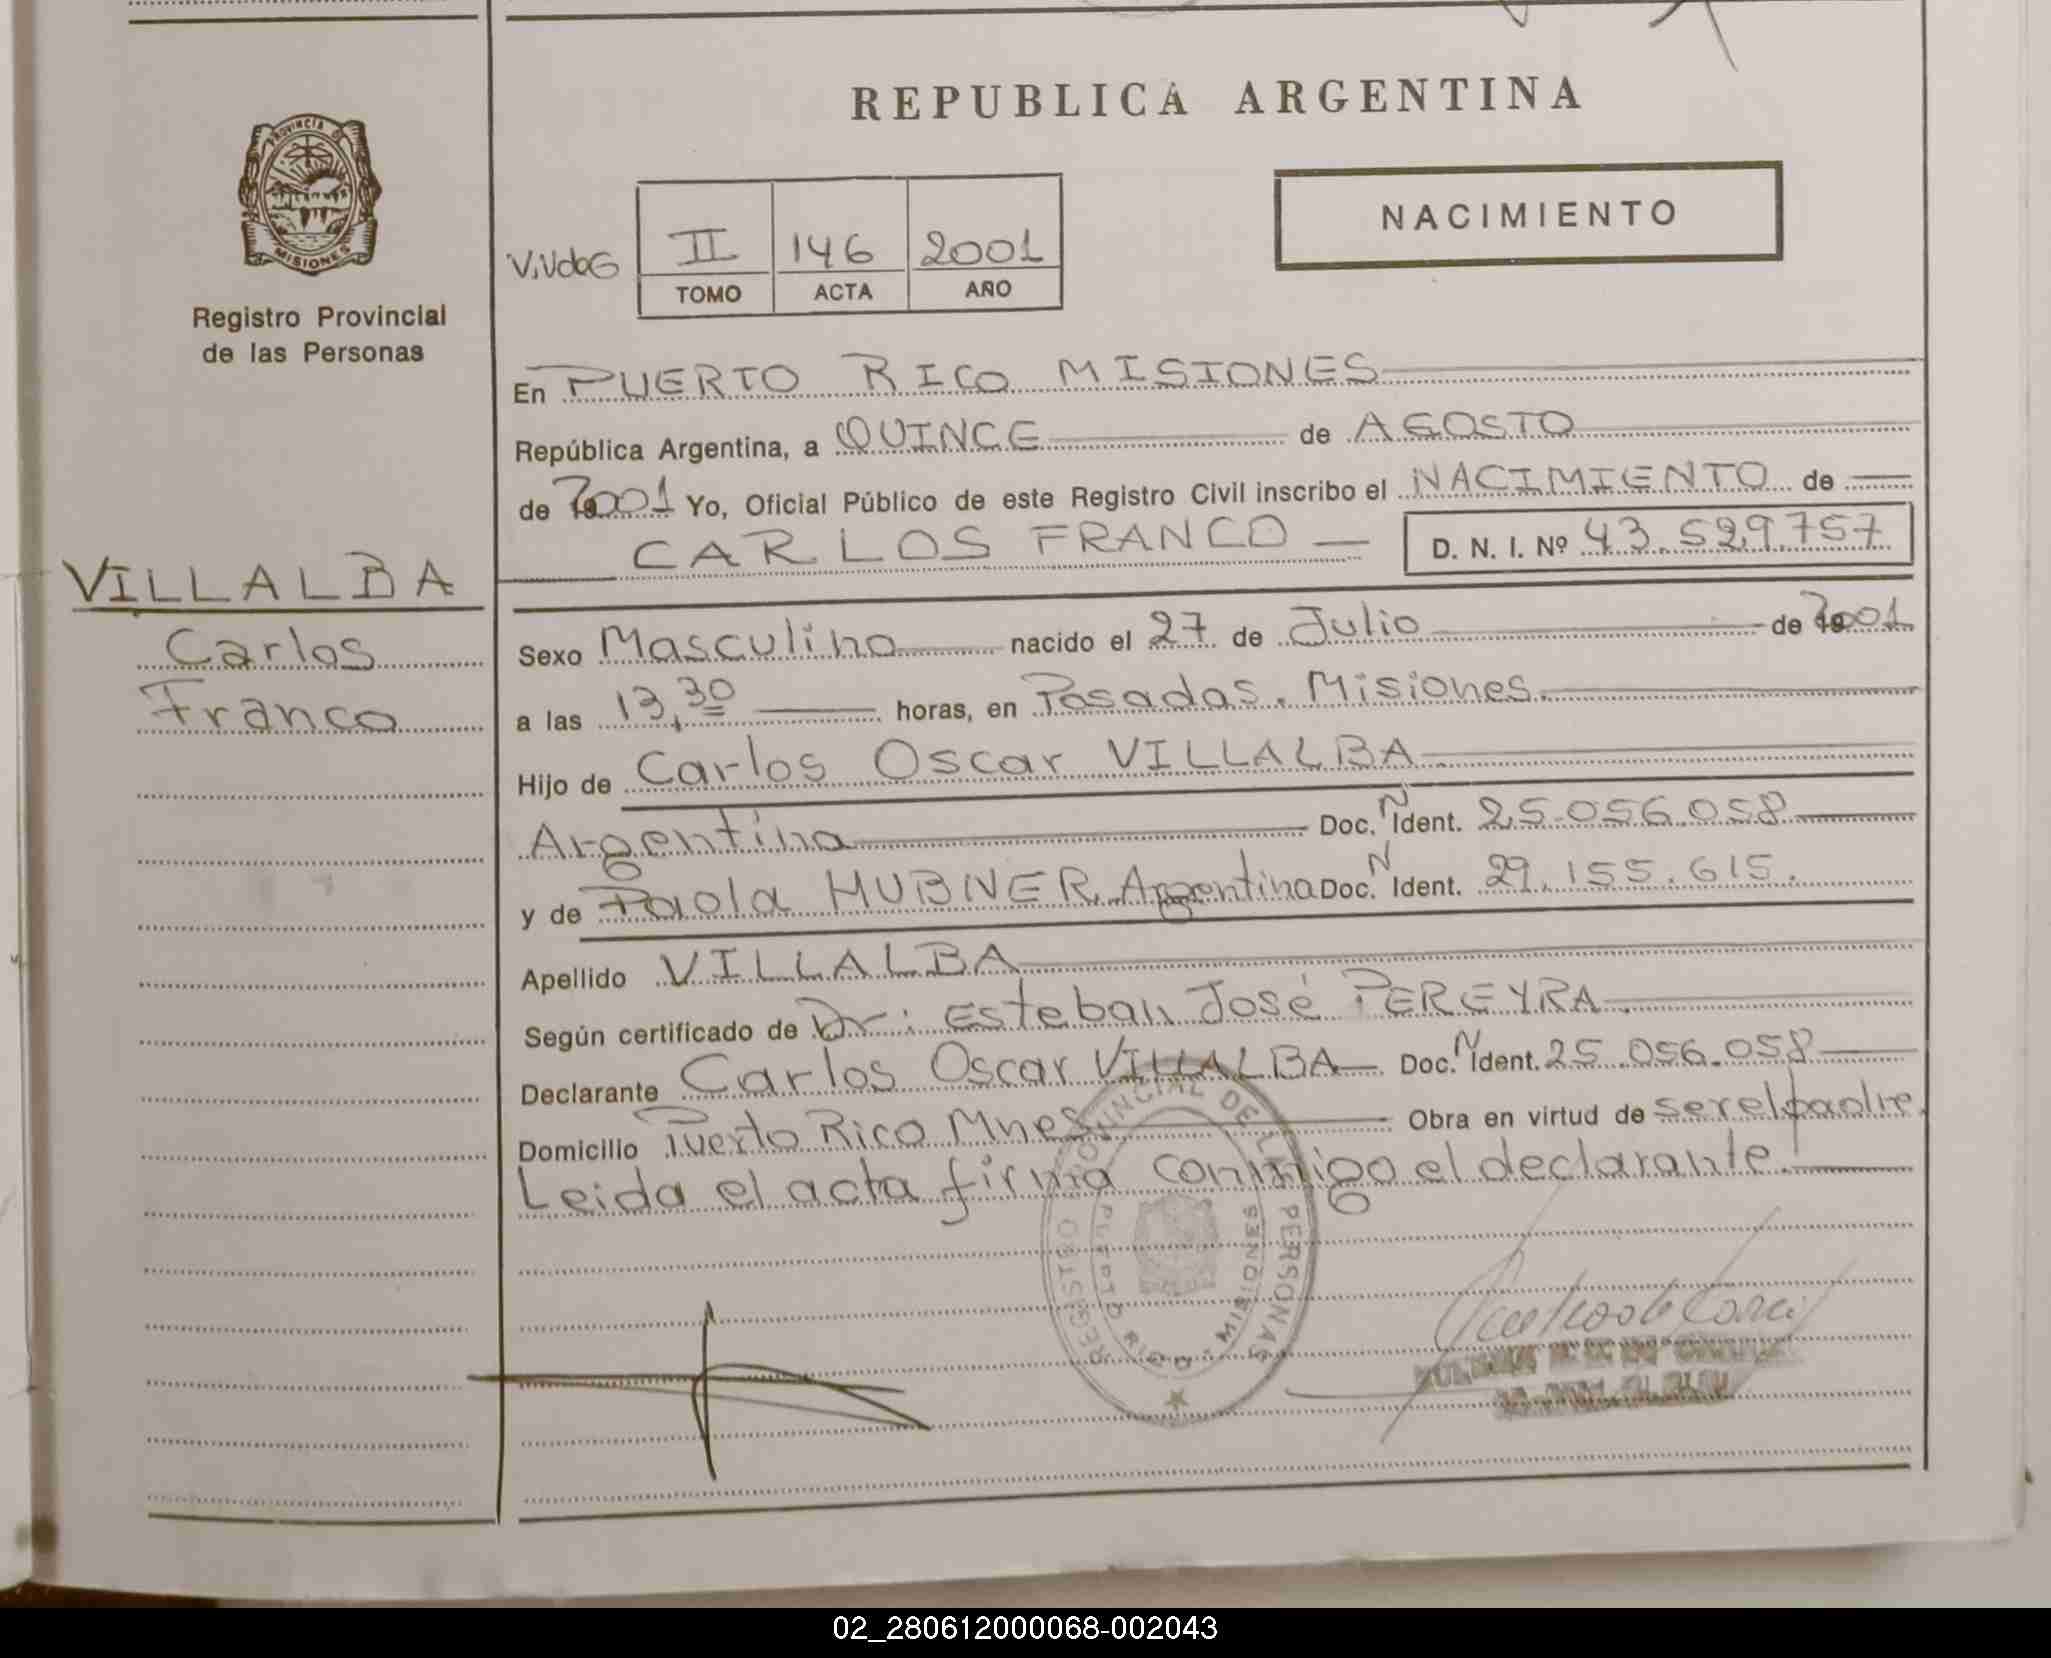 REPUBLICA ARGENTINA
PROVINCIA DE MISIONES
Registro Provincial
de las Personas
V.VdeG II 146 2001
TOMO ACTA AÑO
NACIMIENTO
En PUERTO RICO MISIONES
República Argentina, a QUINCE de AGOSTO
de 2001 Yo, Oficial Público de este Registro Civil inscribo el NACIMIENTO de
CARLOS FRANCO D. N. I. Nº 43.529.757
VILLALBA
Carlos
Franco
Sexo Masculino nacido el 27 de Julio de 2001
a las 13,30 horas, en Posadas. Misiones.
Hijo de Carlos Oscar VILLALBA
Argentino Doc. N Ident. 25.056.058
y de Paola HUBNER Argentina Doc. N Ident. 29.155.615.
Apellido VILLALBA
Según certificado de Dr. Esteban José PEREYRA.
Declarante Carlos Oscar VILLALBA Doc. N Ident. 25.056.058
Domicilio Puerto Rico Mnes. Obra en virtud de ser el padre.
Leida el acta firma conmigo el declarante.
REGISTRO PROVINCIAL DE LAS PERSONAS
PUERTO RICO - MISIONES
02_280612000068-002043